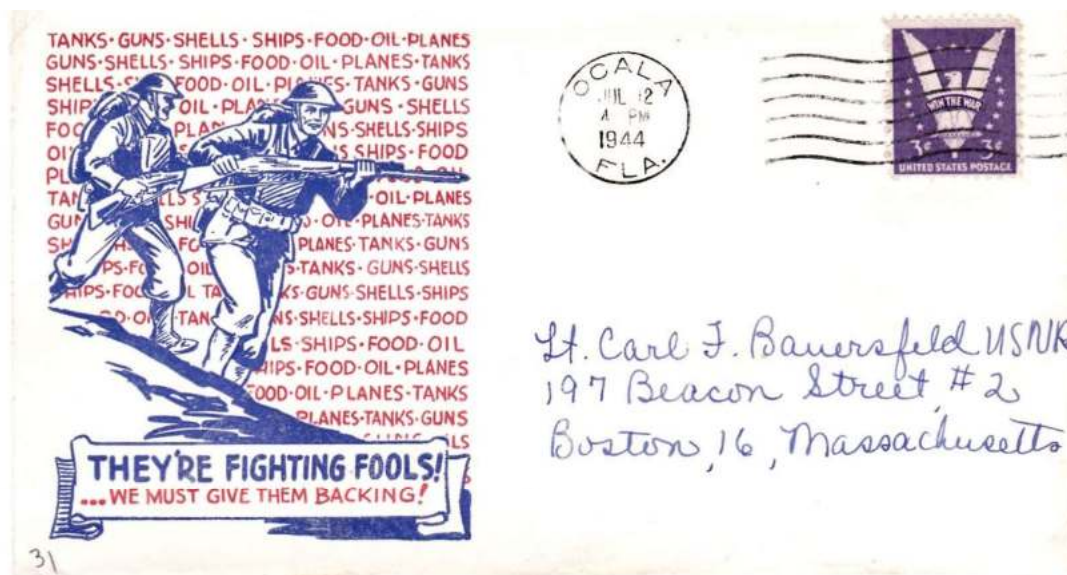 TANKS·GUNS·SHELLS·SHIPS·FOOD·OIL·PLANES
GUNS·SHELLS·SHIPS·FOOD·OIL·PLANES·TANKS
SHELLS· FOOD·OIL·PLANES·TANKS·GUNS
OIL· GUNS·SHELLS
SHELLS·SHIPS
SHIPS·FOOD
OIL·PLANES
OIL·PLANES·TANKS
PLANES·TANKS·GUNS
TANKS·GUNS·SHELLS
GUNS·SHELLS·SHIPS
SHELLS·SHIPS·FOOD
SHIPS·FOOD·OIL
FOOD·OIL·PLANES
OIL·PLANES·TANKS
PLANES·TANKS·GUNS
THEY'RE FIGHTING FOOLS!
...WE MUST GIVE THEM BACKING!
31
OCALA
JUL 12
PM
1944
FLA.
WIN THE WAR
3¢ 3¢
UNITED STATES POSTAGE
Lt. Carl F. Bauersfeld USNR
197 Beacon Street, #2
Boston, 16, Massachusetts